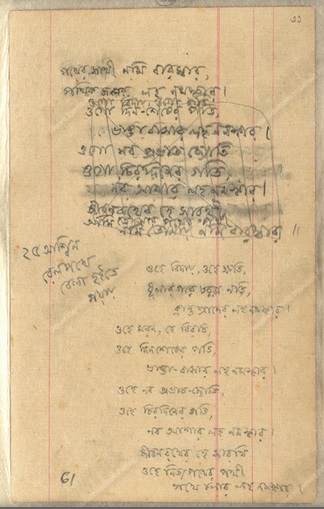 ৩৩
পথের সাথী নমি বারম্বার,
পথিক জনের লহ নমস্কার।
ওগো বিদায়, ওগো ক্ষতি
ওগো দিন-শেষের পতি,
ভাঙা বাসার লহ নমস্কার।
ওগো নব প্রভাত জ্যোতি
ওগো চিরদিনের গতি,
নব আশার লহ নমস্কার।
জীবনরথের হে সারথী
নমি বারম্বার॥
২৫ আশ্বিন
রেলপথে
বেলা হইতে
গয়ায়
ওহে বিদায়, ওহে ক্ষতি,
লহ নমস্কার।
ওহে দিনশেষের পতি,
ভাঙা-বাসার লহ নমস্কার।
ওহে নব প্রভাত-জ্যোতি,
ওহে চিরদিনের গতি,
নব আশার লহ নমস্কার।
জীবনরথের হে সারথি
ওহে নিত্যপথের পথী
পথে চলার লহ নমস্কার।
61